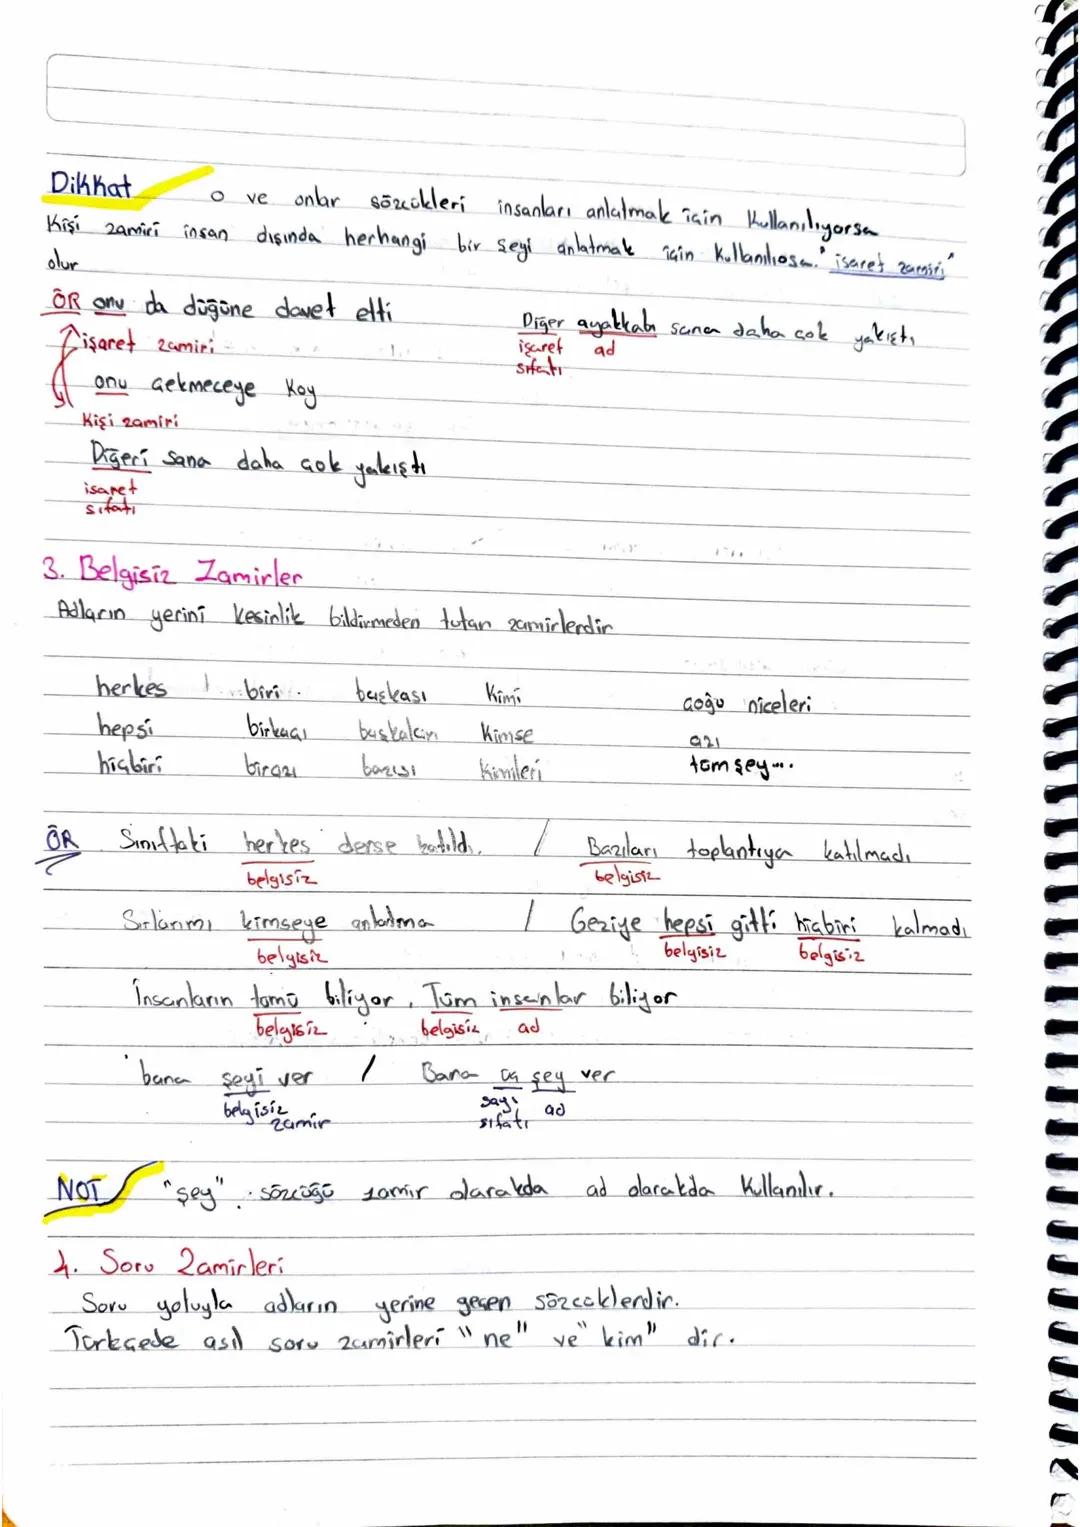 Dikkat o ve onlar sözcükleri insanları anlatmak için kullanılıyorsa
Kişi zamiri insan dışında herhangi bir şeyi anlatmak için kullanılıosa "işaret zamiri"
olur
ÖR onu da düğüne davet etti
işaret zamiri
onu çekmeceye koy
Kişi zamiri
Diğeri sana daha çok yakıştı
işaret
sıfatı
Diğer ayakkabı sana daha çok yakıştı
işaret ad
sıfatı
3. Belgisiz Zamirler
Adların yerini kesinlik bildirmeden tutan zamirlerdir
herkes biri başkası kimi çoğu niceleri
hepsi birkaçı başkaları kimse azı
hiçbiri birazı bazısı kimileri tüm şey....
ÖR Sınıftaki herkes derse katıldı. / Bazıları toplantıya katılmadı
belgisiz belgisiz
Sırlarımı kimseye anlatma / Geziye hepsi gitti hiçbiri kalmadı
belgisiz belgisiz belgisiz
İnsanların tümü biliyor, Tüm insanlar biliyor
belgisiz belgisiz ad
bana şeyi ver / Bana üç şey ver
belgisiz zamir sayı sıfatı ad
NOT "şey" sözcüğü zamir olarakda ad olarakda kullanılır.
4. Soru Zamirleri
Soru yoluyla adların yerine geçen sözcüklerdir.
Türkçede asıl soru zamirleri "ne" ve "kim" dir.